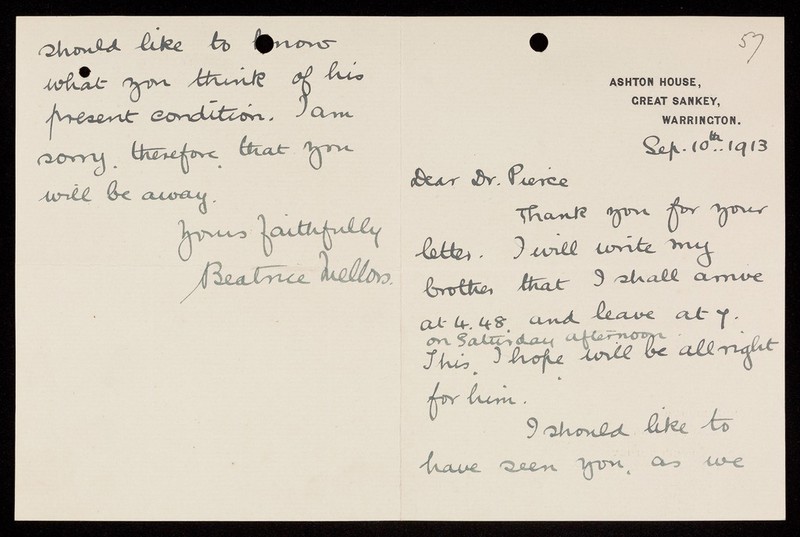 57
ASHTON HOUSE,
GREAT SANKEY,
WARRINGTON.
Sep. 10th. 1913
Dear Dr. Pierce
Thank you for your
letter. I will write my
brother that I shall arrive
at 4.48. and leave at 7.
on Saturday afternoon.
This, I hope will be all right
for him.
I should like to
have seen you, as we
should like to know
what you think of his
present condition. I am
sorry, therefore, that you
will be away.
Yours faithfully
Beatrice Mellors.